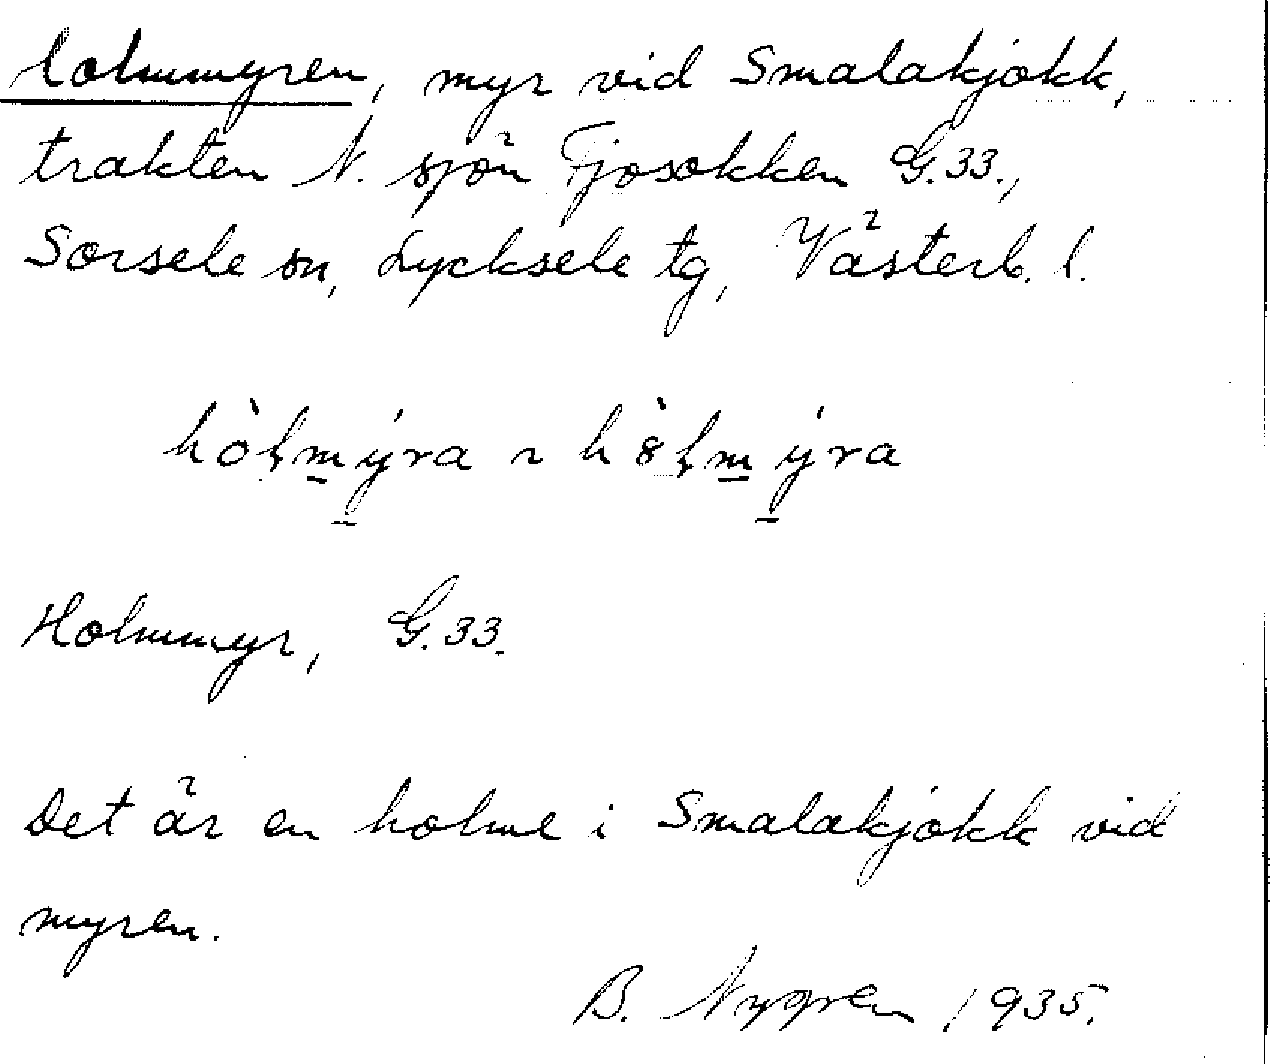 Holmmyren, myr vid Smalakjokk,
trakten N. sjön Fjosokken G.33.,
Sorsele sn, Lycksele tg, Västerb. l.
Holmmyr, G.33.
Det är en holme i Smalakjokk vid
myren.
B. Nygren 1935.